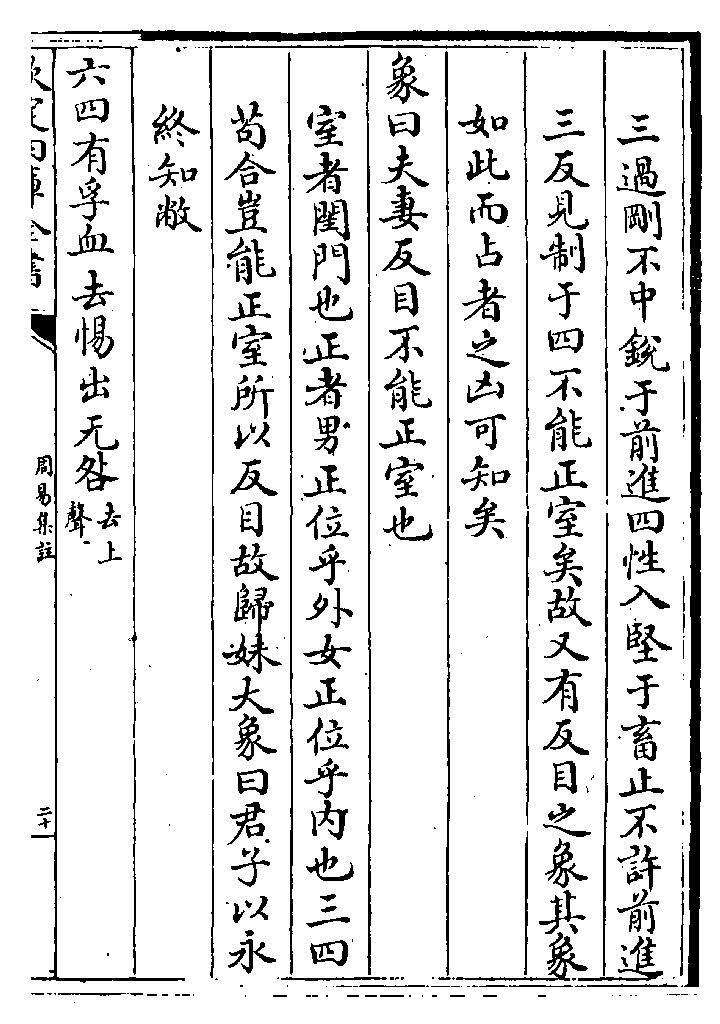 三過剛不中銳于前進四性入堅于畜止不許前進
三反見制于四不能正室矣故又有反目之象其象
如此而占者之凶可知矣
象曰夫妻反目不能正室也
室者閨門也正者男正位乎外女正位乎内也三四
苟合豈能正室所以反目故歸妹大象曰君子以永
終知敝
六四有孚血去惕出无咎去上聲
欽定四庫全書
周易集註
二十